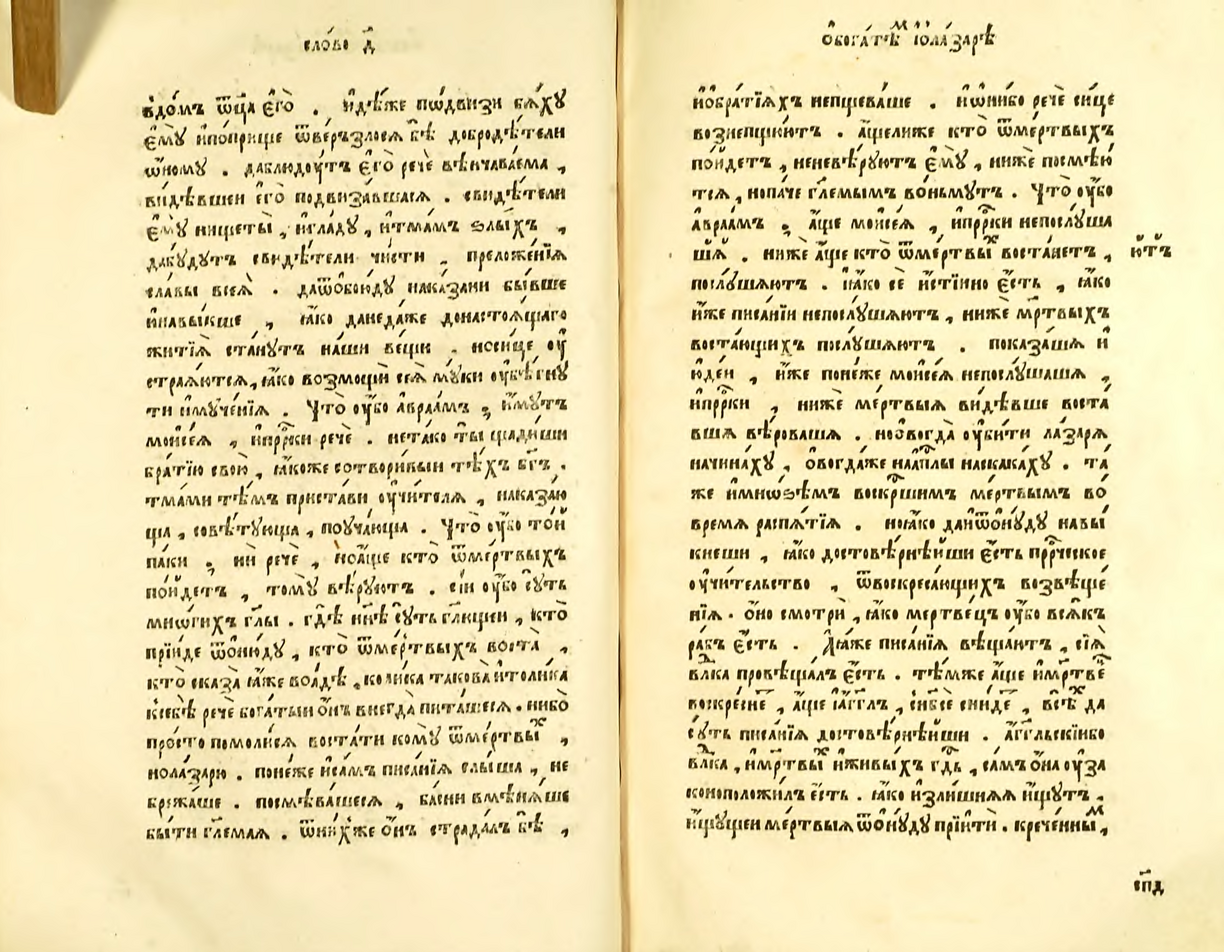 сло́во д҃
вдо́мъ ѿц҃а є҆го̀ . и҆дѣ́же пѡ́двизи бѧ́хꙋ
є҆мꙋ̀ и҆попри́ще ѿве́ръзлосѧ бѣ̀ добродѣ́тели
ѡ҆́номꙋ . даблюдоу́тъ є҆го̀ речѐ вѣнчава́ема ,
ви́дѣвшеи є҆го̀ подвиза́вшасѧ . свидѣ́тели
є҆мꙋ̀ нищеты̀ , и҆гла́дꙋ , и҆тма́мъ ѕлы́хъ ,
дабꙋ́дꙋтъ свидѣ́тели че́сти , преложе́нїѧ
сла́вы всеѧ̀ . даѿѻбои́дꙋ нака́зани бы́вше
и҆навы́кше , ꙗ҆́ко дане́даже донастоѧ́щаго
житїѧ̀ ста́нꙋтъ на́ши ве́щи . носи́це оу҆
страѧ́ютсѧ , ꙗ҆́ко возмощѝ сеѧ̀ мꙋ́ки оу҆бѣ́гнꙋ
ти и҆мꙋче́нїѧ . Что̀ оу҆́бо а҆враа́мъ , и҆́мꙋтъ
моѵсе́ѧ , и҆прⷪ҇ро́ки речѐ . нетáко ты̀ щади́ши
бра́тїю свою̀ , ꙗ҆́коже сотвори́выи тѣ́хъ бг҃ъ .
тма́ми тѣ́мъ приста́ви оу҆чи́телѧ , наказа́ю
ща , совѣ́тꙋюща , поꙋча́юща . Что̀ оу҆́бо то́и
па́ки , нѝ речѐ , ноа҆́ще кто̀ ѿме́ртвыхъ
по́идетъ , томꙋ̀ вѣ́рꙋютъ . сїѝ оу҆́бо сꙋ́ть
мно́гихъ гл҃ы . гдѣ̀ нн҃ѣ сꙋ́ть гл҃ющеи , кто̀
прїи́де ѿѻню́дꙋ , кто̀ ѿме́ртвыхъ воста̀ ,
кто̀ сказа̀ ꙗ҆́же воа́дѣ , коли́ка такова̀ и҆толи́ка
ксебѣ̀ речѐ бога́тыи ѻ҆́нъ внегда̀ пита́шесѧ . ни́бо
про́сто помоли́сѧ воста́ти комꙋ̀ ѿме́ртвыⷯ ,
нола́зарю . поне́же и҆са́мъ писа́нїѧ слы́ша , не
брежа́ше . посмѣва́шесѧ , ба́сни вмѣнѧ́ше
бы́ти гл҃емаѧ . ѿни́хже ѻ҆́нъ страда́лъ бѣ̀ ,
ѻ҆бога́тѣⷨ и҆ѻла́зарѣ
и҆ѻбра́тїѧхъ непщева́ше . и҆ѡни́бо речѐ си́це
возне́пщꙋютъ . а҆́щелиже кто̀ ѿме́ртвыхъ
по́идетъ , неневѣ́рꙋютъ є҆мꙋ̀ , нижѐ посмѣю́
тсѧ , нопа́че гл҃емымъ во́ньмꙋтъ . Что̀ оу҆́бо
а҆враа́мъ , а҆́ще моѵсе́ѧ , и҆прⷪ҇ро́ки непослꙋ́ша
ша̀ . нижѐ а҆́ще кто̀ ѿме́ртвыⷯ воста́нетъ , ю҆́тъ
послꙋ́шаютъ . ꙗ҆́ко сѐ и҆́стинно є҆́сть , ꙗ҆́ко
и҆́же писа́нїи непослꙋ́шаютъ , нижѐ мр҃твыхъ
востаю́щихъ послꙋ́шаютъ . показа́ша и҆
ю҆де́и , и҆́же поне́же моѵсе́ѧ непослꙋ́шаша ,
и҆прⷪ҇ро́ки , нижѐ ме́ртвыѧ ви́дѣвше воста́
вша вѣ́роваша . ноѻвогда̀ оу҆би́ти ла́зарѧ
начина́хꙋ , ѻ҆вогда́же наа҆пⷭ҇лы наскака́хꙋ . та́
же и҆мно́ѕѣмъ воскр҃шимъ ме́ртвымъ во́
вре́мѧ распѧ́тїѧ . ноꙗ҆́ко даиѿѻнꙋ́дꙋ навы́
кнеши , ꙗ҆́ко достовѣ́рнѣиши є҆́сть прⷪ҇ро́ческое
оу҆чи́тельство , ѿвоскреса́ющихъ возвѣще́
нїѧ . ѻ҆́но смотрѝ , ꙗ҆́ко мертве́цъ оу҆́бо всѧ́къ
ра́бъ є҆́сть . А҆ꙗ҆́же писа́нїѧ вѣща́ютъ , сїѧ̀
влⷣка провѣща́лъ є҆́сть . тѣ́мже а҆́ще и҆мр҃тве
воскре́сне , а҆́ще и҆а҆́гг҃лъ , сн҃бсѐ сни́де , всѣⷯ да
сꙋ́ть писа́нїѧ достовѣ́рнѣиши . а҆́гг҃льскїибо
влⷣка , и҆мр҃твыⷯ и҆живы́хъ гдⷭ҇ь , са́мъ ѻ҆на̀ оу҆за
коноположи́лъ є҆́сть . ꙗ҆́ко и҆зли́шнѧѧ и҆́щꙋтъ ,
и҆́щꙋщеи ме́ртвыѧ ѿѻнꙋ́дꙋ прїитѝ . крече́нныⷨ ,
сп҃д